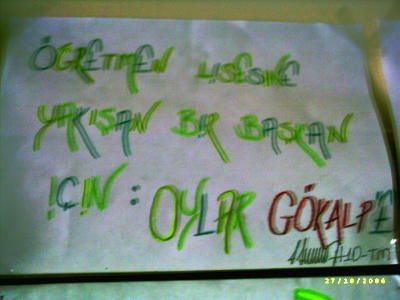 ÖĞRETMEN LİSESİNE
YAKIŞAN BİR BAŞKAN
İÇİN : OYLAR GÖKALP'E
27/10/2006